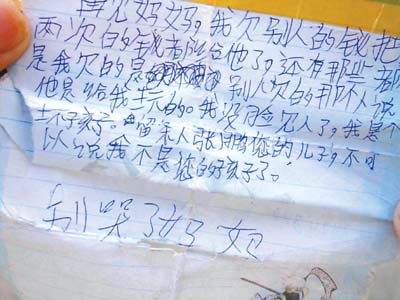 再见妈妈。我欠别人的钱把
两次的钱都给他了。还有那些都
是我欠的是别人欠的那人说
他是给我玩的。我没脸见人了。我是个
坏孩子。留条人张鹏您的儿子,不可
以说我不是您的好孩子了。
别哭了妈妈